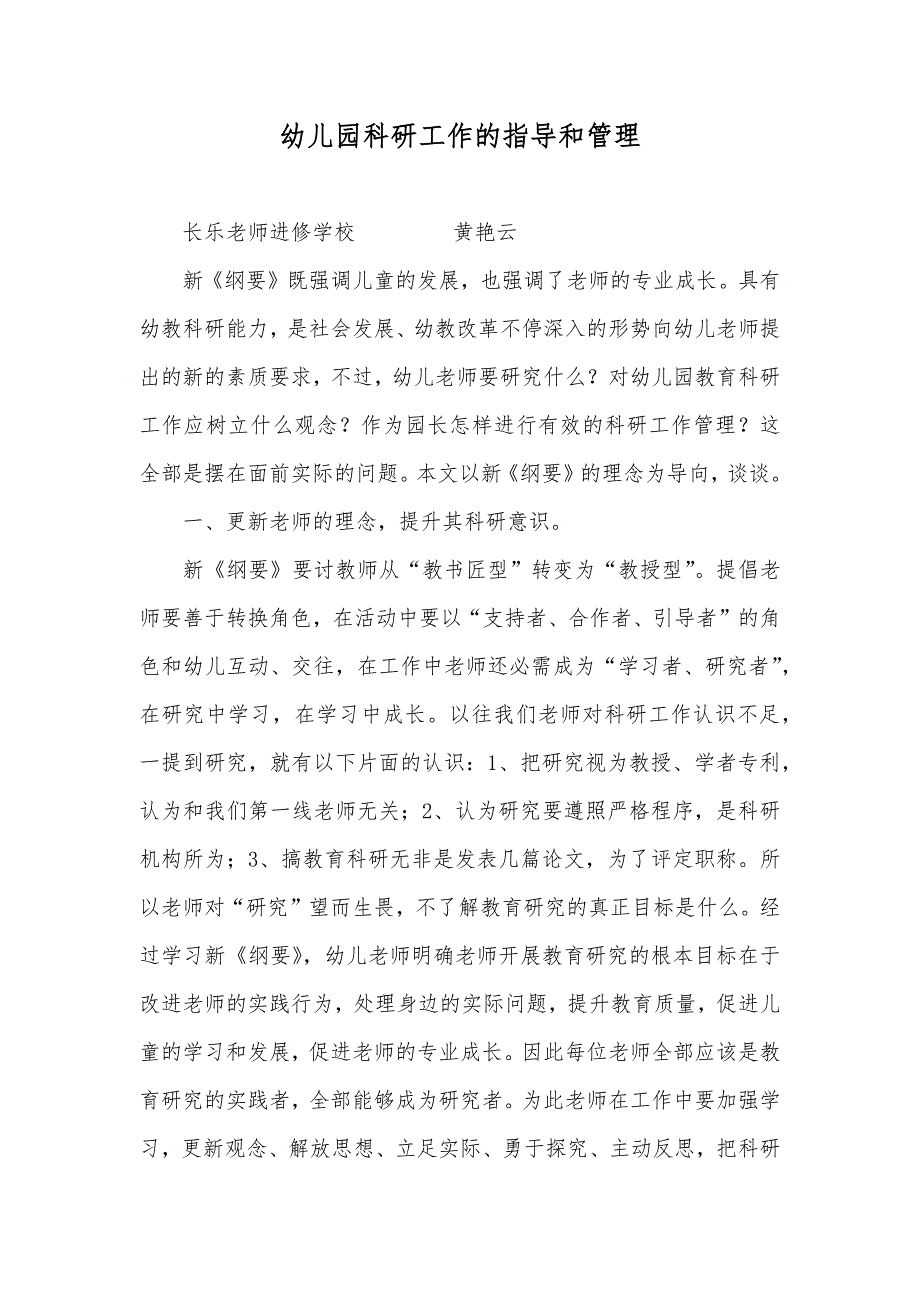 幼儿园科研工作的指导和管理
长乐老师进修学校 黄艳云
新《纲要》既强调儿童的发展，也强调了老师的专业成长。具有
幼教科研能力，是社会发展、幼教改革不停深入的形势向幼儿老师提
出的新的素质要求，不过，幼儿老师要研究什么？对幼儿园教育科研
工作应树立什么观念？作为园长怎样进行有效的科研工作管理？这
全部是摆在面前实际的问题。本文以新《纲要》的理念为导向，谈谈。
一、更新老师的理念，提升其科研意识。
新《纲要》要讨教师从“教书匠型”转变为“教授型”。提倡老
师要善于转换角色，在活动中要以“支持者、合作者、引导者”的角
色和幼儿互动、交往，在工作中老师还必需成为“学习者、研究者”，
在研究中学习，在学习中成长。以往我们老师对科研工作认识不足，
一提到研究，就有以下片面的认识：1、把研究视为教授、学者专利，
认为和我们第一线老师无关；2、认为研究要遵照严格程序，是科研
机构所为；3、搞教育科研无非是发表几篇论文，为了评定职称。所
以老师对“研究”望而生畏，不了解教育研究的真正目标是什么。经
过学习新《纲要》，幼儿老师明确老师开展教育研究的根本目标在于
改进老师的实践行为，处理身边的实际问题，提升教育质量，促进儿
童的学习和发展，促进老师的专业成长。因此每位老师全部应该是教
育研究的实践者，全部能够成为研究者。为此老师在工作中要加强学
习，更新观念、解放思想、立足实际、勇于探究、主动反思，把科研